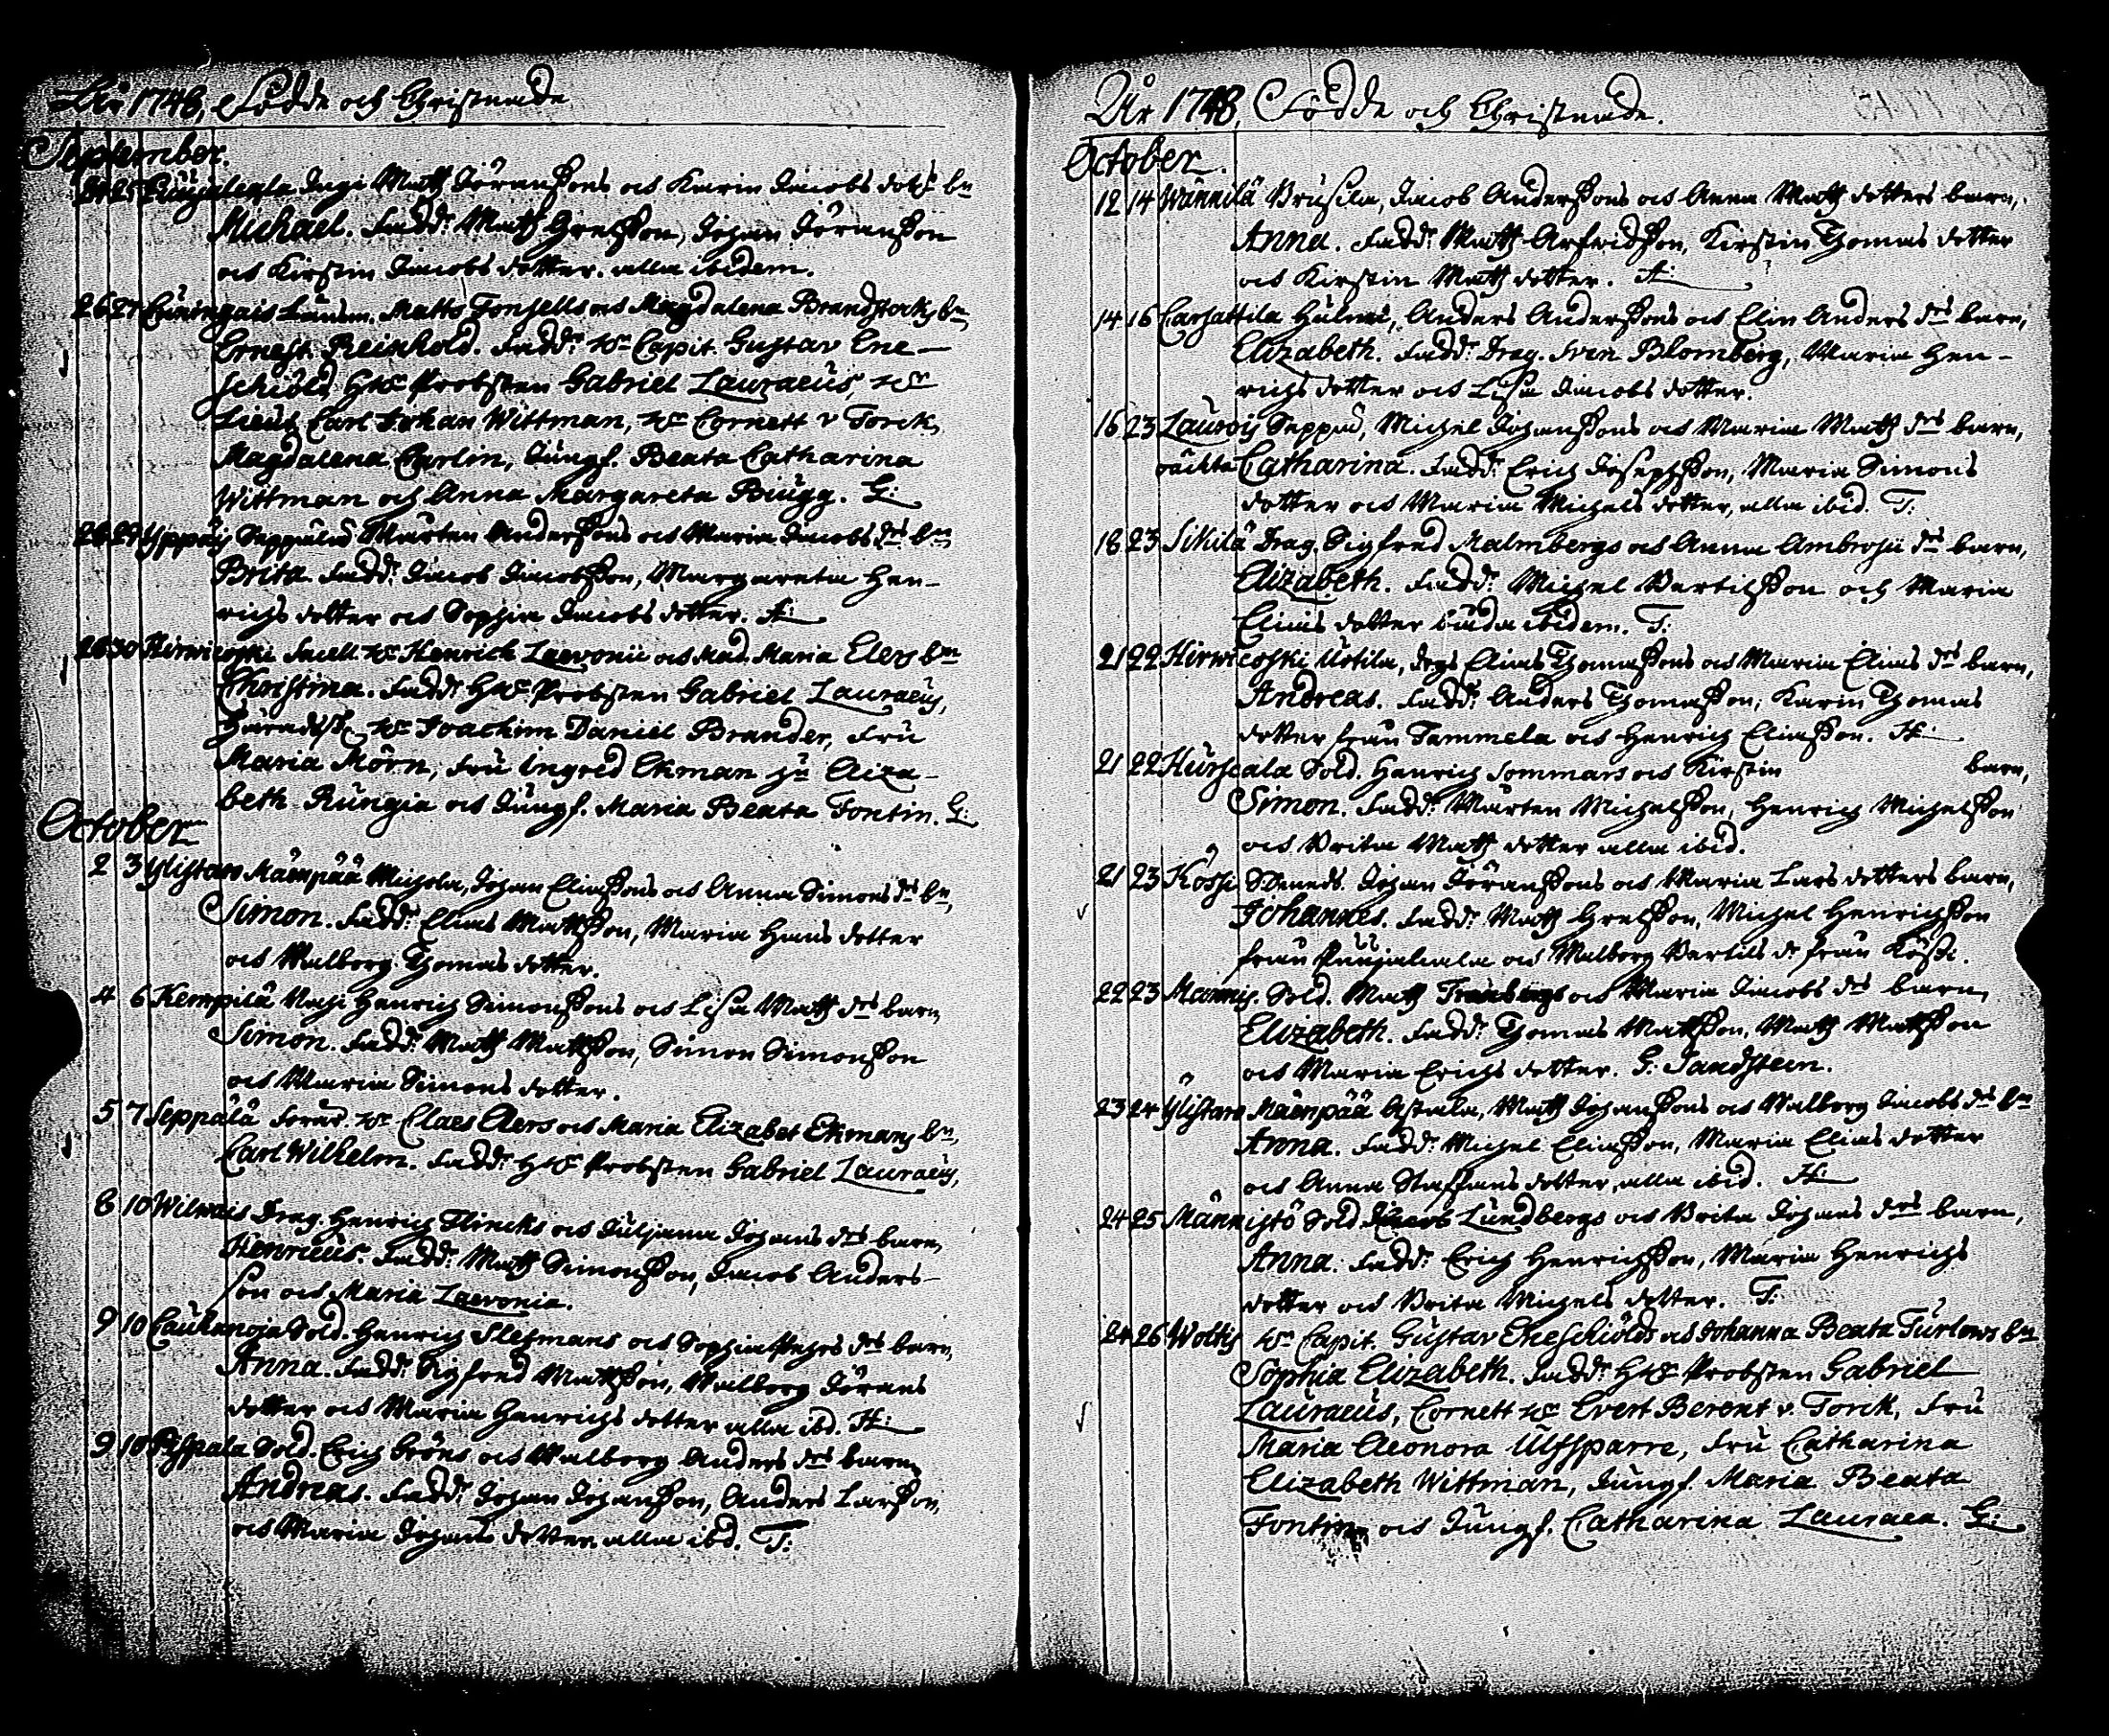 År 1748, Födde och Christnade
September.
24 25 Puujalkala Ingi Matth Jöranssons och Karin Jacobs dotrs bn
Michael. Fadd: Matth Grelsson, Johan Jöransson
och Kirstin Jacobs dotter. alla ibidem.
26 27 Cuiningais Länsm. Matts Fonsells och Magdalena Brandstacks bn,
Ernest Reinhold. Fadd: Hr Capit. Gustav Ene-
schiöld, HHr Probsten Gabriel Lauraeus, Hr
Lieut. Carl Johan Wittman, Hr Cornett v Torck,
Magdalena Carlin, Jungf. Beata Catharina
Wittman och Anna Margareta Bugg. G:
28 29 Yppäis Seppälä Mårten Anderssons och Maria Jacobs drs bn,
Brita. Fadd: Jacob Jacobsson, Margareta Hen-
richs dotter och Sophia Jacobs dotter. H:
28 30 Hirwicoski Hr Henrich Laevonii och Mad. Maria Elers bn
Christina. Fadd: HHr Probsten Gabriel Lauraeus,
Hr Joachim Daniel Brander, Fru
Maria Mörn, Fru Ingred Ekman Eliza-
beth Rungia och Jungf. Maria Beata Fontin. G:
October
2 3 Ylistaro Mäenpää Michola, Johan Eliassons och Anna Simons drs bn,
Simon. Fadd: Elias Mattsson, Maria Hans dotter
och Walborg Thomas dotter.
4 6 Kempilä Henrich Simonssons och Lisa Matth drs barn,
Simon. Fadd: Matth Mattsson, Simon Simonsson
och Maria Simons dotter.
5 7 Seppälä Hr Claes Elers och Maria Elizabet Ekmans bn,
Carl Wilhelm. Fadd: HHr Probsten Gabriel Lauraeus,
8 10 Wilwais Drag. Henrich Flincks och Juljana Johans drs barn,
Henricus. Fadd: Matth Simonsson, Jacob Anders-
son och Maria Laevonia.
9 10 Caukanoja Sold. Henrich Sleymans och Sophia drs barn,
Anna. Fadd: Sigfred Mattsson, Walborg Jörans
dotter och Maria Henrichs dotter alla ibd. H:
9 10 Pispala Sold. Erich Gröns och Walborg Anders drs barn,
Andreas. Fadd: Johan Johansson, Anders Larsson,
och Maria Johans dotter alla ibd. T:
År 1748, Födde och Christnade.
October.
12 14 Wännilä Brusila, Jacob Anderssons och Anna Matth dotters barn,
Anna. Fadd: Matth Arfwidsson, Kirstin Thomas dotter
och Kirstin Matth dotter. H:
14 16 Carsattila Hulmi, Anders Anderssons och Elin Anders drs barn,
Elizabeth. Fadd: Drag. Sven Blomberg, Maria Hen-
richs dotter och Lisa Jacobs dotter.
16 23 Laurois Seppä, Michel Johanssons och Maria Matth drs barn,
oächta Catharina. Fadd: Erich Josephsson, Maria Simons
dotter och Maria Michels dotter, alla ibid. T:
18 23 Sikilä Drag. Sigfred Malmbergs och Anna Ambrosii drs barn,
Elizabeth. Fadd: Michel Bertilsson och Maria
Elias dotter båda ibidem. T:
21 22 Hirwicoski Uotila, Elias Thomassons och Maria Elias drs barn,
Andreas. Fadd: Anders Thomasson, Karin Thomas
dotter från Tammela och Henrich Eliasson. H:
21 22 Hurscala Sold. Henrich Sommars och Kirstin barn,
Simon. Fadd: Mårten Michelsson, Henrich Michelsson
och Brita Matth dotter alla ibid.
21 23 Köjhi Johan Jöranssons och Maria Lars dotters barn,
Johannes. Fadd: Matth Grelsson, Michel Henrichsson
från Puujalkala och Walborg Bertils dr från Köjhi.
22 23 Mannis. Sold. Matth Tranbergs och Maria Jacobs drs barn,
Elizabeth. Fadd: Thomas Mattsson, Matth Mattsson
och Maria Erichs dotter. G: Sandsteen.
23 24 Ylistaro Mäenpää Astala, Matth Johanssons och Walborg Jacobs drs bn
Anna. Fadd: Michel Eliasson, Maria Elias dotter
och Anna Staffans dotter, alla ibid. H:
24 25 Männistö Sold. Lundbergs och Brita Johans drs barn,
Anna. Fadd: Erich Henrichsson, Maria Henrichs
dotter och Brita Michels dotter. T:
24 26 Woltis Hr Capit. Gustav Eneschiölds och Johanna Beata Turlows bn
Sophia Elizabeth. Fadd: HHr Probsten Gabriel
Lauraeus, Cornett Hr Evert Berent v. Torck, Fru
Maria Eleonora Ulfsparre, Fru Catharina
Elizabeth Wittman, Jungf. Maria Beata
Fontin och Jungf. Catharina Lauraea. G: